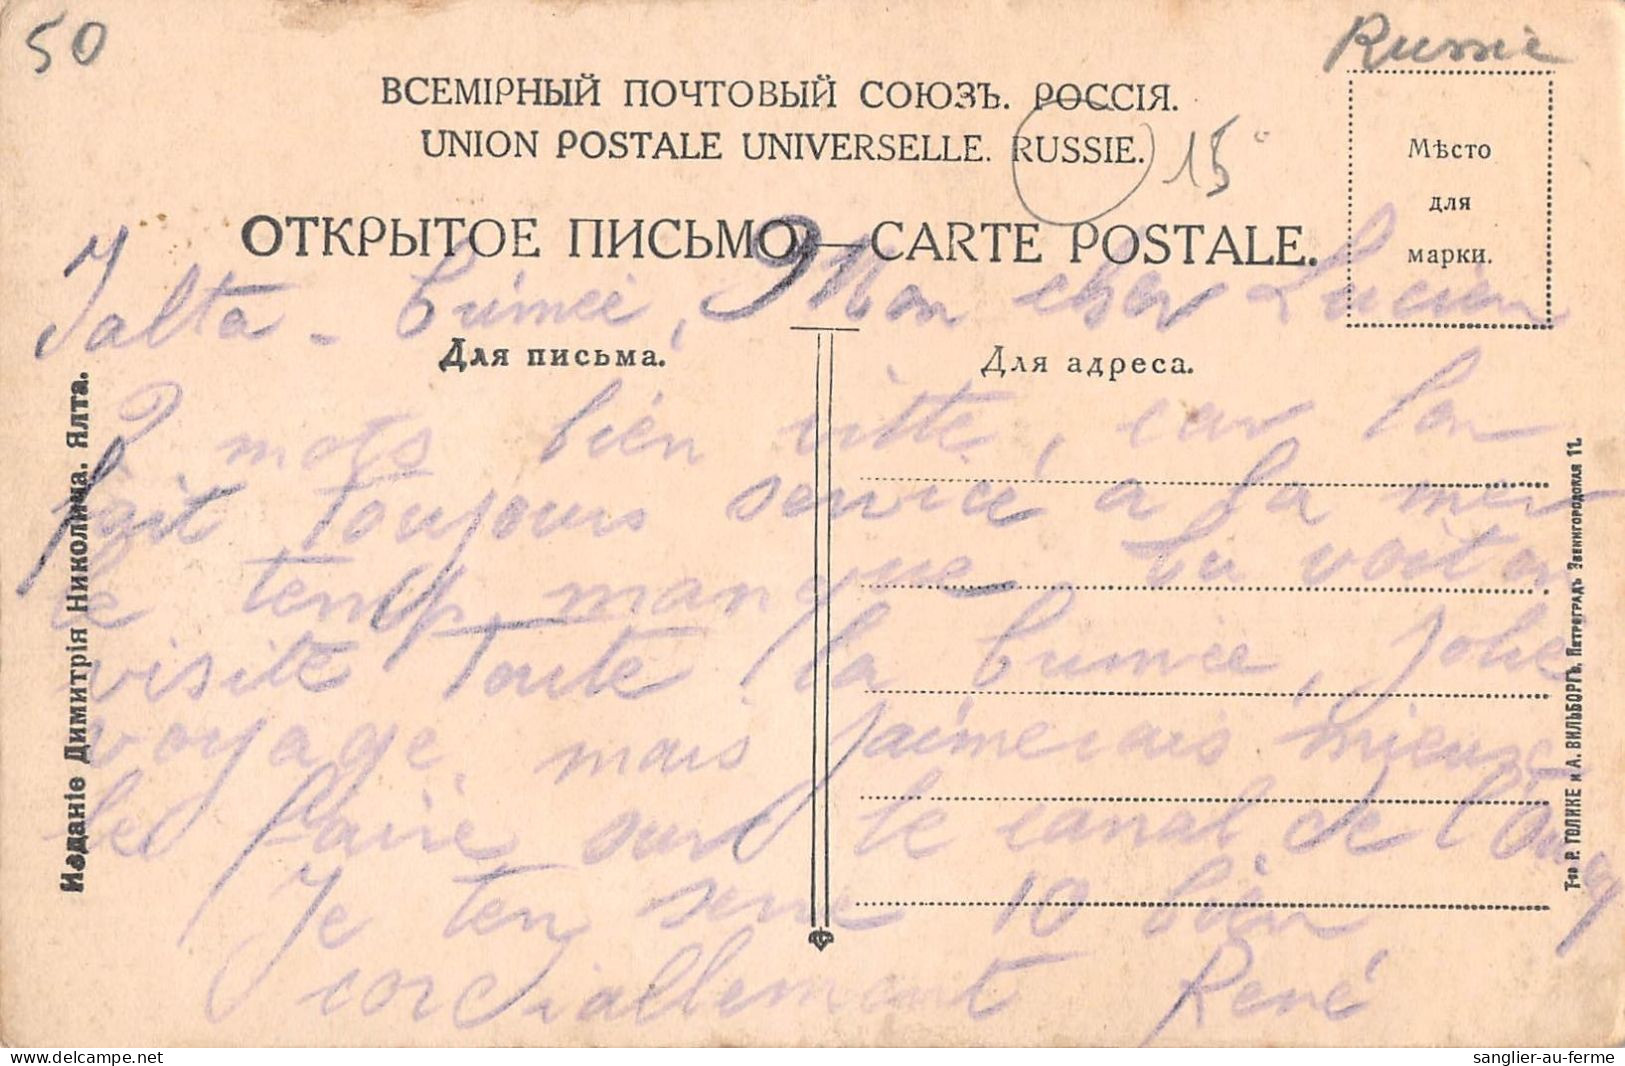 50
Russie
ВСЕМІРНЫЙ ПОЧТОВЫЙ СОЮЗЪ. РОССІЯ.
UNION POSTALE UNIVERSELLE. RUSSIE.
15
ОТКРЫТОЕ ПИСЬМО — CARTE POSTALE.
Мѣсто
для
марки.
Для письма.
Для адреса.
Yalta - Crimée, Mon cher Lucien
2 mots bien vitte, car l'on
fait toujours service a la mer
le temps manque. Tu voit on
visite toute la Crimée, Jolie
voyage, mais j'aimerais mieux
le faire sur le canal de l'Ourcq
Je ten serre 10 bien
cordiallement René
Изданіе Димитрія Николица. Ялта.
Т-во Р. ГОЛИКЕ и А. ВИЛЬБОРГЪ, Петроградъ Звенигородская 11.
sanglier-au-ferme